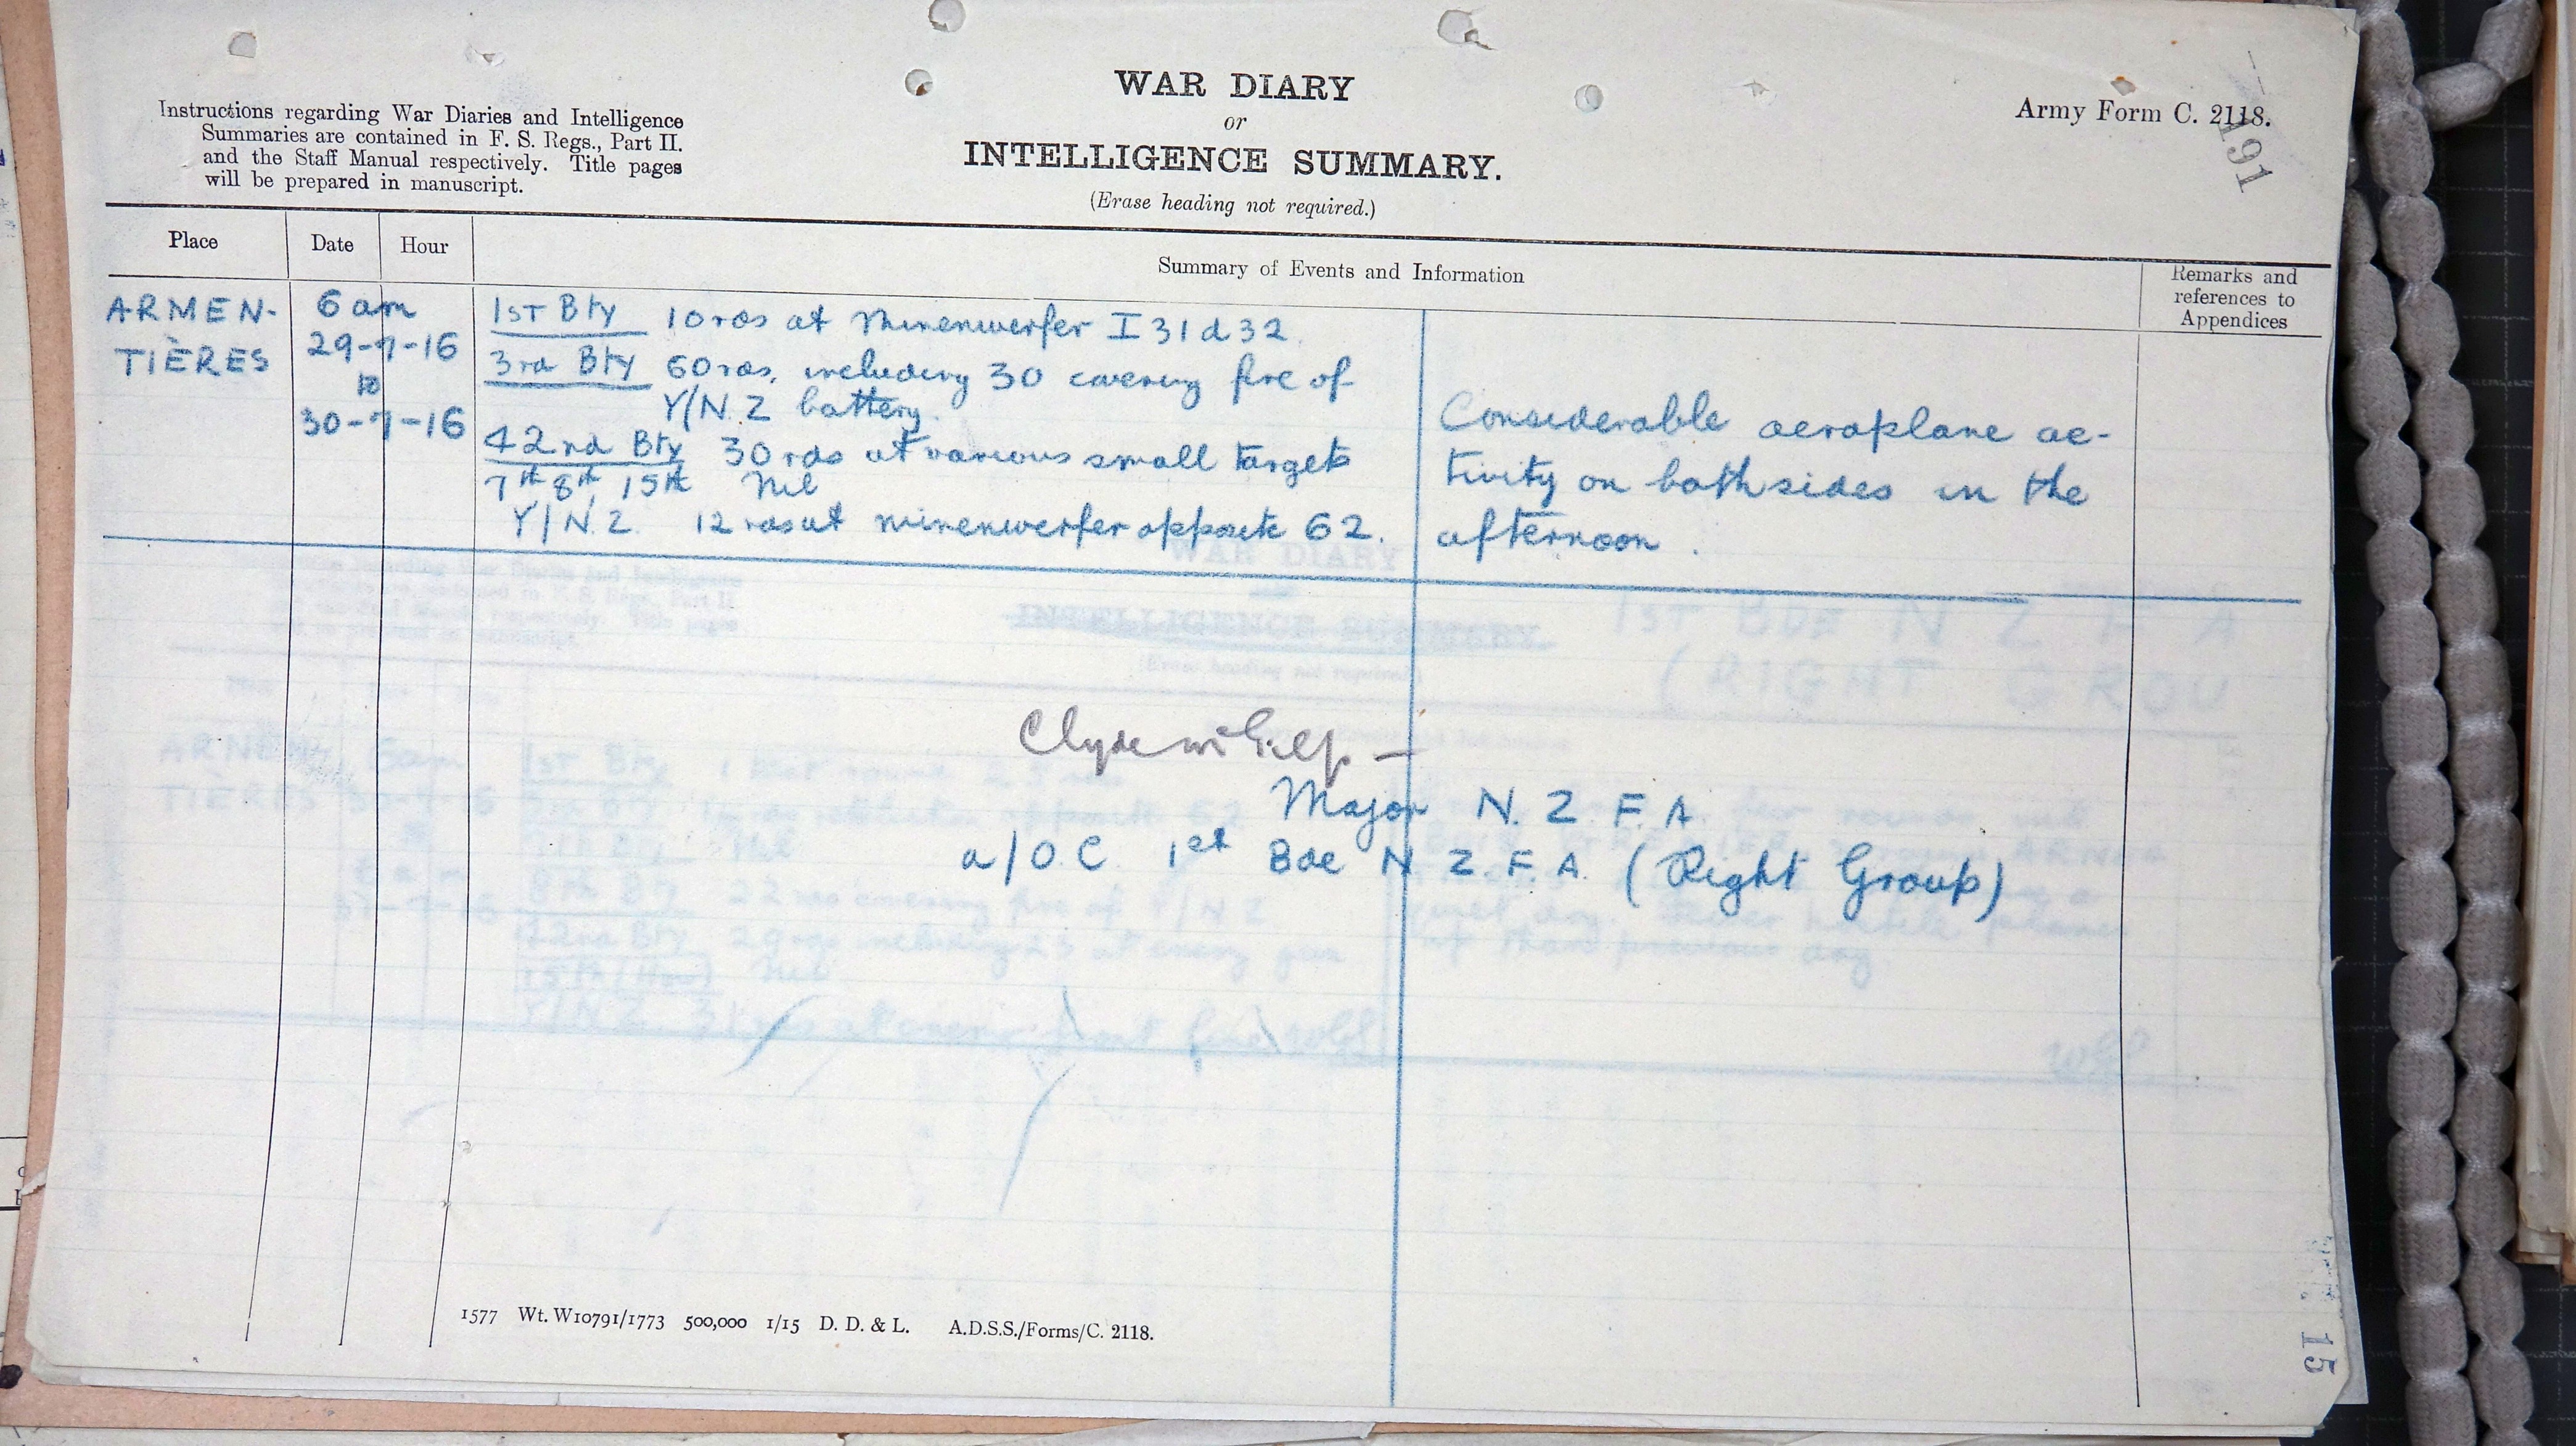 Instructions regarding War Diaries and Intelligence
Summaries are contained in F. S. Regs., Part II.
and the Staff Manual respectively. Title pages
will be prepared in manuscript.
WAR DIARY
or
INTELLIGENCE SUMMARY.
(Erase heading not required.)
Army Form C. 2118.
191
Place
Date
Hour
Summary of Events and Information
Remarks and
references to
Appendices
ARMEN-
TIÈRES
6 am
29-7-16
to
30-7-16
1ST Bty 10 rds at Minenwerfer I 31 d 32.
3rd Bty 60 rds, including 30 covering fire of
Y/N.Z battery.
42nd Bty 30 rds at various small targets
7th 8th 15th Nil
Y/N.Z. 12 rds at minenwerfer opposite 62.
Considerable aeroplane ac-
tivity on both sides in the
afternoon.
Clyde
Major N. Z. F. A
a/O.C. 1st Bde N Z. F. A. (Right Group)
1577 Wt. W10791/1773 500,000 1/15 D. D. & L. A.D.S.S./Forms/C. 2118.
15